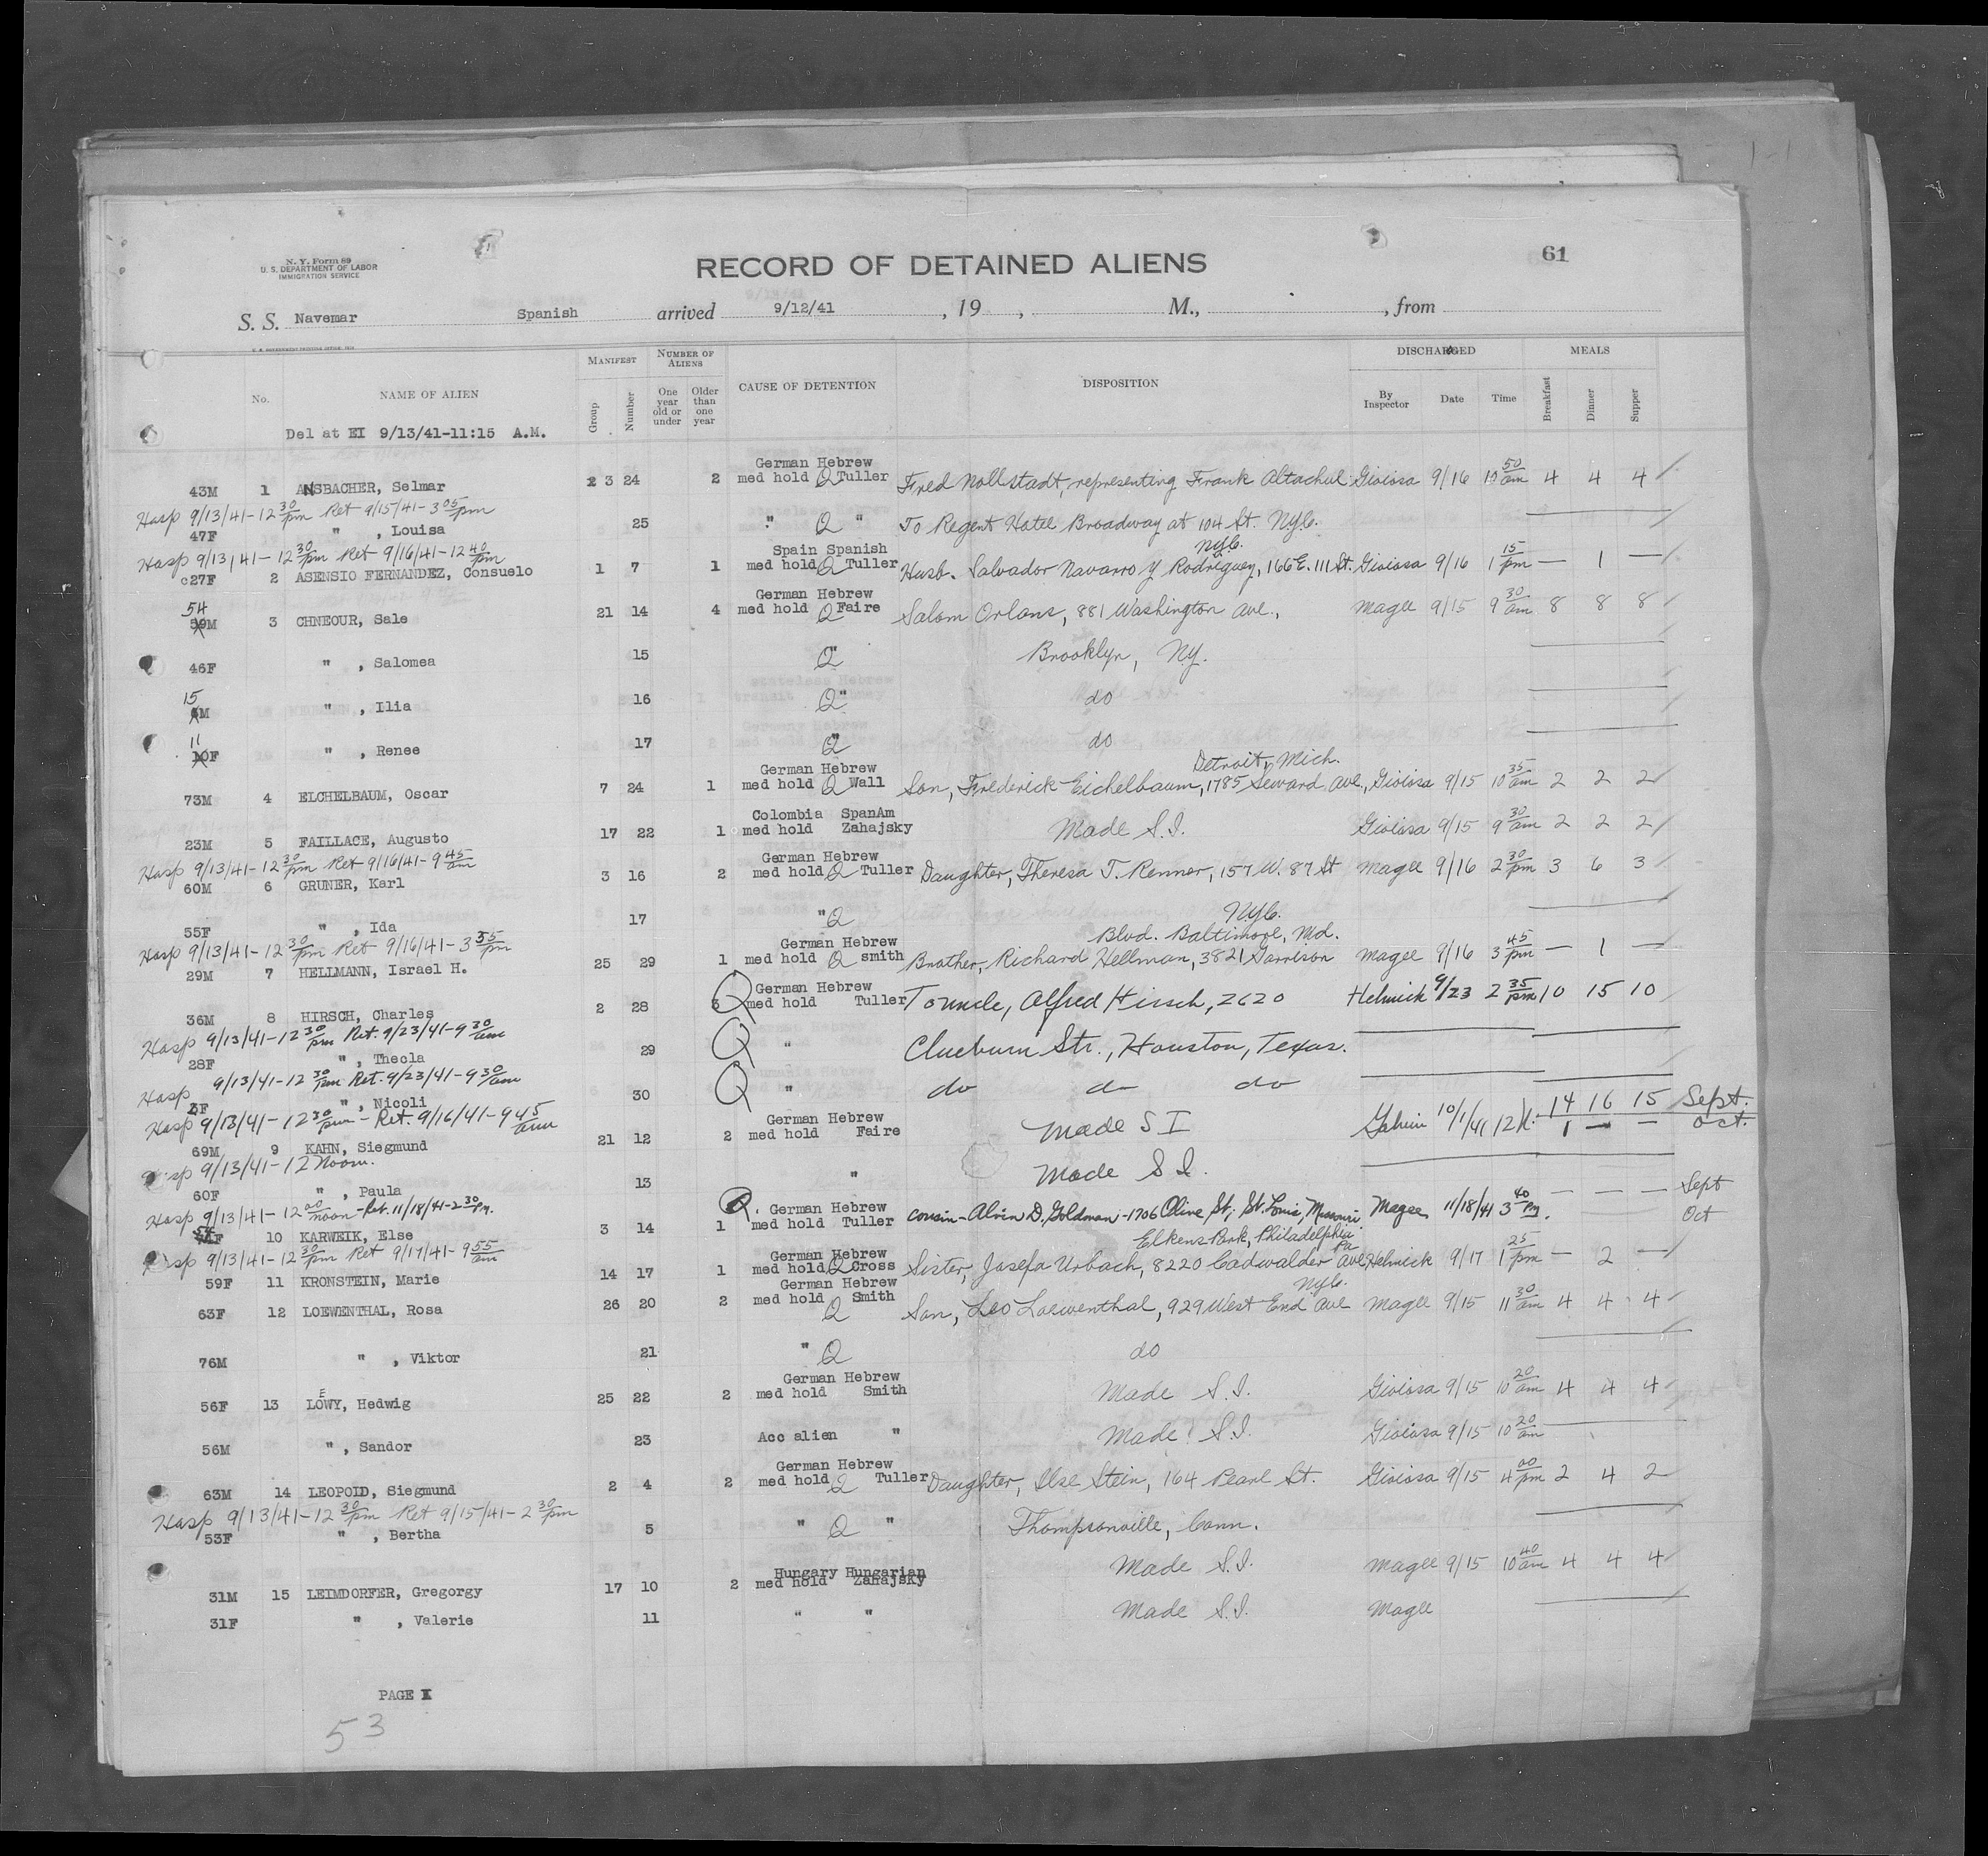 N. Y. Form 89
U. S. DEPARTMENT OF LABOR
IMMIGRATION SERVICE
RECORD OF DETAINED ALIENS
61
S. S. Navemar Spanish arrived 9/12/41, 19 , M., , from
No. NAME OF ALIEN MANIFEST Group Number NUMBER OF ALIENS One year old or under Older than one year CAUSE OF DETENTION DISPOSITION DISCHARGED By Inspector Date Time MEALS Breakfast Dinner Supper
Del at EI 9/13/41-11:15 A.M.
German Hebrew
43M 1 ANSBACHER, Selmar 3 24 2 med hold Q Tuller Fred Nollstadt, representing Frank Altachul Gioiosa 9/16 10 50 am 4 4 4
Hosp 9/13/41-12 30 pm Ret 9/15/41-3 05 pm
47F " , Louisa 25 " Q " To Regent Hotel Broadway at 104 St. NYC.
Hosp 9/13/41-12 30 pm Ret 9/16/41-12 40 pm
Spain Spanish NYC.
27F 2 ASENSIO FERNANDEZ, Consuelo 1 7 1 med hold Q Tuller Husb. Salvador Navarro y Rodriguez, 166 E. 111 St. Gioiosa 9/16 1 15 pm — 1 —
German Hebrew
54 59M 3 CHNEOUR, Sale 21 14 4 med hold Q Faire Salom Orlans, 881 Washington Ave., Magee 9/15 9 30 am 8 8 8
46F " , Salomea 15 Q" Brooklyn, NY.
15 M " , Ilia 16 Q" do
11 10F " , Renee 17 Q" do
German Hebrew Detroit, Mich.
73M 4 ELCHELBAUM, Oscar 7 24 1 med hold Q Wall Son, Frederick Eichelbaum, 1785 Seward Ave., Gioiosa 9/15 10 35 am 2 2 2
Colombia SpanAm
23M 5 FAILLACE, Augusto 17 22 1 med hold Zahajsky Made S.I. Gioiosa 9/15 9 30 am 2 2 2
Hosp 9/13/41-12 30 pm Ret 9/16/41-9 45 am
German Hebrew
60M 6 GRUNER, Karl 3 16 2 med hold Q Tuller Daughter, Theresa T. Renner, 157 W. 87 St Magee 9/16 2 30 pm 3 6 3
55F " , Ida 17 "Q NYC.
Hosp 9/13/41-12 30 pm Ret 9/16/41-3 35 pm
German Hebrew Blvd. Baltimore, Md.
29M 7 HELLMANN, Israel H. 25 29 1 med hold Q smith Brother, Richard Hellman, 3821 Garrison Magee 9/16 3 45 pm — 1 —
German Hebrew
36M 8 HIRSCH, Charles 2 28 3 Q med hold Tuller To uncle, Alfred Hirsch, 2620 Helmick 9/23 2 35 pm 10 15 10
Hosp 9/13/41-12 30 pm Ret. 9/23/41-9 30 am
28F " , Thecla 29 Q " Clueburn Str., Houston, Texas.
Hosp 9/13/41-12 30 pm Ret. 9/23/41-9 30 am
F " , Nicoli 30 Q " do do do
Hosp 9/13/41-12 30 pm - Ret. 9/16/41-9 45 am
German Hebrew
69M 9 KAHN, Siegmund 21 12 2 med hold Faire Made S I 10/1/41 12 14 16 15 Sept.
1 — — Oct.
Hosp 9/13/41-12 Noon.
60F " , Paula 13 " Made S I.
Hosp 9/13/41-12 00 noon - Ret. 11/18/41-2 30 PM.
German Hebrew
F 10 KARWEIK, Else 3 14 1 Q. med hold Tuller cousin-Alvin D. Goldman-1706 Olive St; St. Louis, Missouri Magee 11/18/41 3 40 PM. — — — Sept
Oct
Hosp 9/13/41-12 30 pm Ret 9/17/41-9 55 am
German Hebrew Elkens Park, Philadelphia Pa
59F 11 KRONSTEIN, Marie 14 17 1 med hold Q Cross Sister, Josefa Urbach, 8220 Cadwalder Ave, Helmick 9/17 1 25 pm — 2 —
German Hebrew NYC.
63F 12 LOEWENTHAL, Rosa 26 20 2 med hold Smith Q Son, Leo Loewenthal, 929 West End Ave Magee 9/15 11 30 am 4 4 4
76M " , Viktor 21 " Q do
German Hebrew
56F 13 LOEWY, Hedwig 25 22 2 med hold Smith Made S.I. Gioiosa 9/15 10 20 am 4 4 4
56M " , Sandor 23 Acc alien " Made S.I. Gioiosa 9/15 10 20 am
German Hebrew
63M 14 LEOPOLD, Siegmund 2 4 2 med hold Q Tuller Daughter, Ilse Stein, 164 Pearl St. Gioiosa 9/15 4 00 pm 2 4 2
Hosp 9/13/41-12 30 pm Ret 9/15/41-2 30 pm
53F " , Bertha 5 " Q " Thompsonville, Conn.
Hungary Hungarian
31M 15 LEIMDORFER, Gregorgy 17 10 2 med hold Zahajsky Made S.I. Magee 9/15 10 40 am 4 4 4
31F " , Valerie 11 " " Made S.I. Magee
PAGE I
53